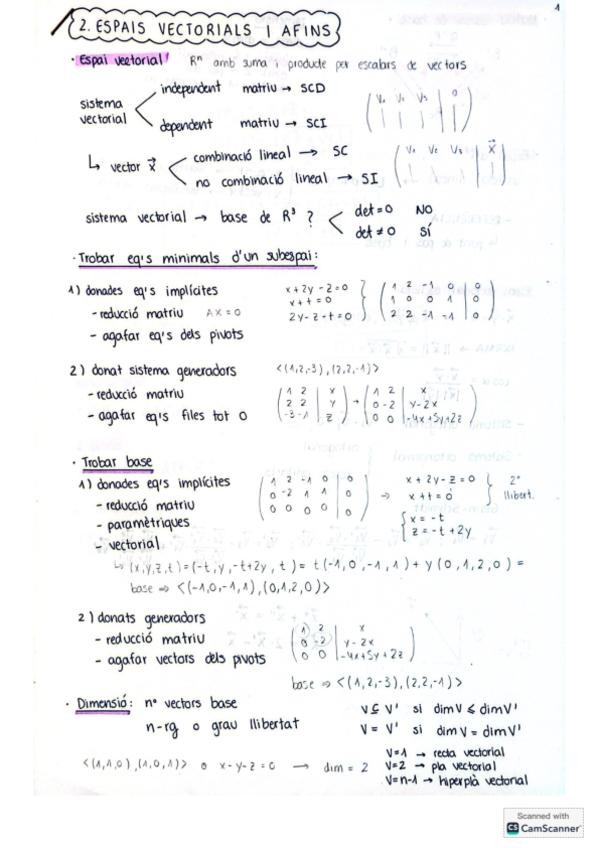 1
2. ESPAIS VECTORIALS I AFINS
· Espai vectorial: Rⁿ amb suma i producte per escalars de vectors
sistema vectorial
independent matriu → SCD
dependent matriu → SCI
( V₁ V₂ V₃ | 0 )
↳ vector x⃗
combinació lineal → SC
no combinació lineal → SI
( V₁ V₂ V₃ | x⃗ )
sistema vectorial → base de R³ ?
det = 0 NO
det ≠ 0 SÍ
· Trobar eq's minimals d'un subespai:
1) donades eq's implícites
- reducció matriu AX = 0
- agafar eq's dels pivots
x + 2y - z = 0
x + t = 0
2y - z - t = 0
1 2 -1 0 | 0
1 0 0 1 | 0
2 2 -1 -1 | 0
2) donat sistema generadors <(1,2,-3),(2,2,-1)>
- reducció matriu
- agafar eq's files tot 0
1 2 | x → 1 2 | x
2 2 | y 0 -2 | y-2x
-3 -1 | z 0 0 | -4x+5y+2z
· Trobar base
1) donades eq's implícites
- reducció matriu
- paramètriques
- vectorial
1 2 -1 0 | 0
0 -2 1 1 | 0
0 0 0 0 | 0
⇒ x + 2y - z = 0
x + t = 0
2° llibert.
x = -t
z = -t + 2y
↳ (x,y,z,t) = (-t, y, -t+2y, t) = t(-1,0,-1,1) + y(0,1,2,0) =
base ⇒ <(-1,0,-1,1),(0,1,2,0)>
2) donats generadors
- reducció matriu
- agafar vectors dels pivots
1 2 | x
0 -2 | y-2x
0 0 | -4x+5y+2z
base ⇒ <(1,2,-3),(2,2,-1)>
· Dimensió: nº vectors base
n-rg o grau llibertat
V ⊆ V' si dimV ≤ dimV'
V = V' si dimV = dimV'
<(1,1,0),(1,0,1)> o x-y-z = 0 → dim = 2
V=1 → recta vectorial
V=2 → pla vectorial
V=n-1 → hiperplà vectorial
Scanned with
CS CamScanner